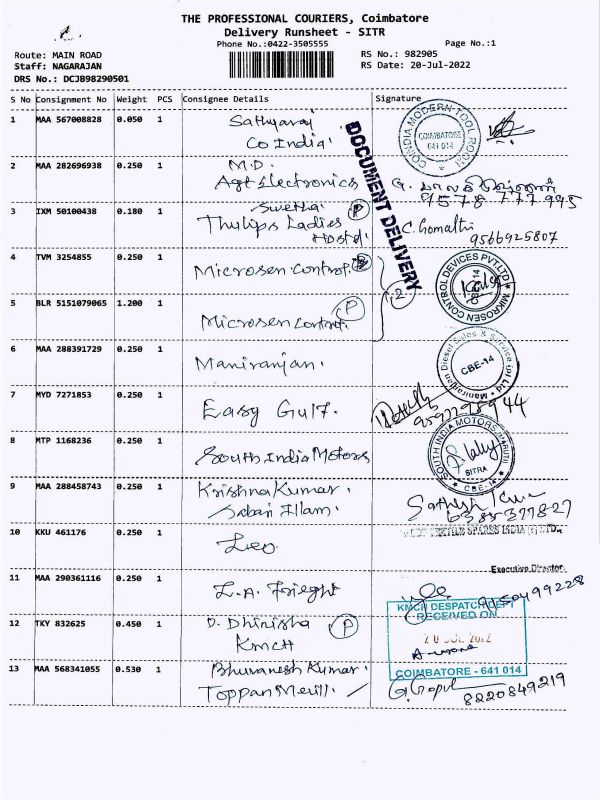 THE PROFESSIONAL COURIERS, Coimbatore
Delivery Runsheet - SITR
Phone No.:0422-3505555
Page No.:1
Route: MAIN ROAD
RS No.: 982905
Staff: NAGARAJAN
RS Date: 20-Jul-2022
DRS No.: DCJB98290501
S No Consignment No Weight PCS Consignee Details Signature
1 MAA 567008828 0.050 1 Sathyaraj
Co India
COINDIA MODERN TOOL ROOM
COIMBATORE
641 014
DOCUMENT DELIVERY
2 MAA 282696938 0.250 1 M.D.
Agt Electronics
9578 777 995
3 IXM 50100438 0.180 1 Swetha P
Thulips Ladies Hostel
C. Gomathi
9566925807
4 TVM 3254855 0.250 1 Microsen Control
2
MIKROSEN CONTROL DEVICES PVT.LTD
5 BLR 5151079065 1.200 1 P
Microsen Control
6 MAA 288391729 0.250 1 Maniranjan.
Maniranjan Diesel Sales & Service (p) Ltd
CBE-14
7 MYD 7271853 0.250 1 Easy Gulf.
8 MTP 1168236 0.250 1 South India Motors
SOUTH INDIA MOTORS
MARUTI
SITRA
CBE-14
9 MAA 288458743 0.250 1 Krishna Kumar.
Sabari Illam.
10 KKU 461176 0.250 1 Leo
SPARES INDIA (P) LTD.
Executive Director
11 MAA 290361116 0.250 1 L.A. Frieght
9750499228
12 TKY 832625 0.450 1 D. Dhinisha P
KMCH
KMCH DESPATCH DEPT
RECEIVED ON
20 JUL 2022
COIMBATORE - 641 014
13 MAA 568341055 0.530 1 Bhuvanesh Kumar.
Toppan Merill.
G. Gopal
8220849219